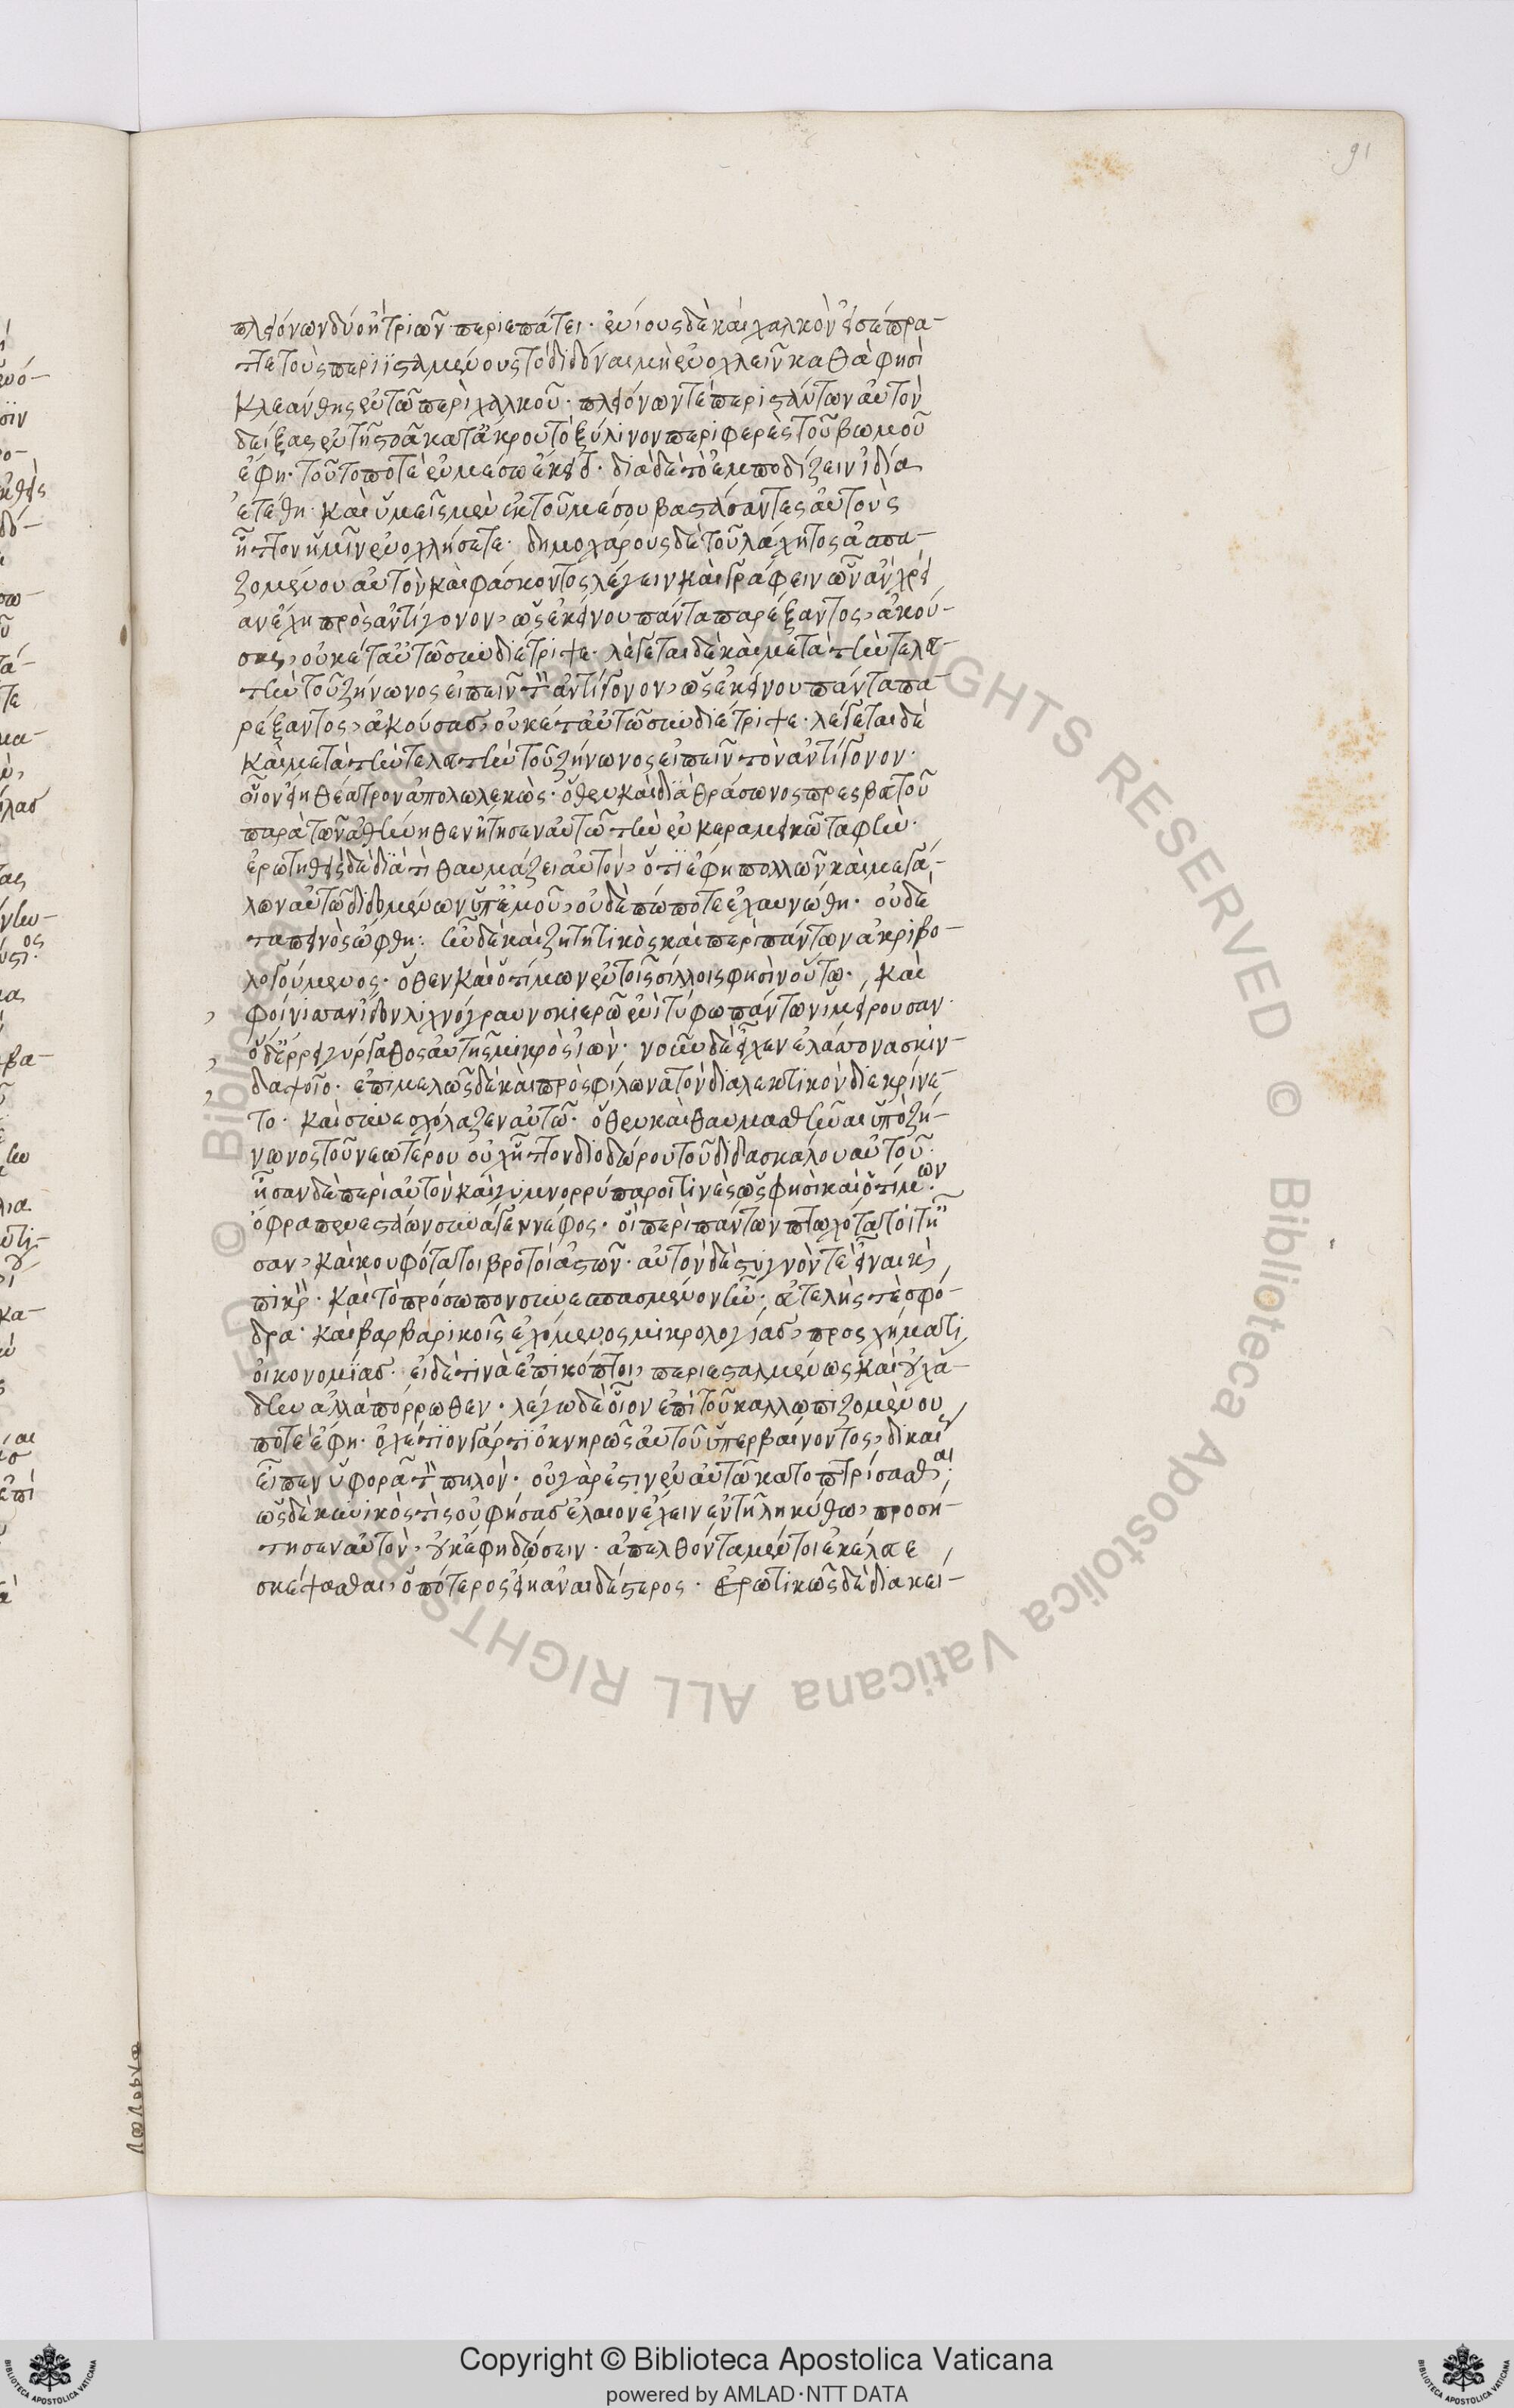 91
πλειόνων δύο ἢ τριῶν περιεπάτει· ἐνίους δὲ καὶ χαλκὸν εἰσέπρα-
ττε τοὺς περιϊσταμένους τὸ διδόναι μὴ ἐνοχλεῖν καθὰ φησὶ
Κλεάνθης ἐν τῶ περὶ χαλκοῦ· πλειόνων τὲ περιστάντων αὐτὸν
δείξας ἐν τῆ στοᾶ κατ' ἄκρου τὸ ξύλινον περιφερὲς τοῦ βωμοῦ
ἔφη· τοῦτο ποτὲ ἐν μέσω ἔκειτο· διὰ δὲ τὸ ἐμποδίζειν ἰδία
ἐτέθη· καὶ ὑμεῖς μὲν ἐκ τοῦ μέσου βαστάσαντες αὐτοὺς
ἧττον ἡμῖν ἐνοχλήσετε· δημοχάρους δὲ τοῦ λάχητος ἀσπα-
ζομένου αὐτὸν καὶ φάσκοντος λέγειν καὶ γράφειν ὧν ἂν χρεί
αν ἔχη πρὸς ἀντίγονον, ὡς ἐκείνου πάντα παρέξαντος, ἀκού-
σας, οὐκέτ' αὐτῶ συνδιέτριψε· λέγεται δὲ καὶ μετὰ τὴν τελευ-
τὴν τοῦ ζήνωνος εἰπεῖν τὸν ἀντίγονον, ὡς ἐκείνου πάντα πα-
ρέξαντος, ἀκούσας, οὐκέτ' αὐτῶ συνδιέτριψε· λέγεται δὲ
καὶ μετὰ τὴν τελευτὴν τοῦ ζήνωνος εἰπεῖν τὸν ἀντίγονον·
οἷον εἴη θέατρον ἀπολωλεκὼς· ὅθεν καὶ διὰ θράσωνος πρεσβευτοῦ
παρὰ τῶν ἀθηνηθεν ἤτησεν αὐτῶ τὴν ἐν κεραμεικῶ ταφὴν·
ἐρωτηθεὶς δὲ διὰ τί θαυμάζει αὐτὸν, ὅτι ἔφη πολλῶν καὶ μεγά-
λων αὐτῶ διδομένων ὑπ' ἐμοῦ, οὐδὲ πώποτε ἐχαυνώθη· οὐδὲ
ταπεινὸς ὤφθη· ἦν δὲ καὶ ζητητικὸς καὶ περὶ πάντων ἀκριβο-
λογούμενος· ὅθεν καὶ ὁ τίμων ἐν τοῖς σίλλοις φησὶν οὕτω· καὶ
φοίνισσαν ἴδον λιχνόγραυν σκιερῶ ἐνὶ τύφω πάντων ἱμείρουσαν·
ὁ δ' ἔρρει γυργαθος αὐτῆς μικρὸς ἰὼν· νοῦν δὲ εἶχεν ἐλάττονα σκιν-
δαψοῖο· ἐπιμελῶς δὲ καὶ πρὸς φίλωνα τὸν διαλεκτικὸν διεκρίνε-
το· καὶ συνεσχόλαζεν αὐτῶ· ὅθεν καὶ θαυμασθῆναι ὑπὸ ζή-
νωνος τοῦ νεωτέρου οὐχ ἧττον διοδώρου τοῦ διδασκάλου αὐτοῦ·
ἦσαν δὲ περὶ αὐτὸν καὶ γυμνορρύπαροι τινὲς ὥς φησὶ καὶ ὁ τίμων·
ὄφρα πενεστάων συνάγεν νέφος· οἳ περὶ πάντων πτωχότατοί τ' ἦ
σαν, καὶ κουφότατοι βροτοὶ ἀστῶν· αὐτὸν δὲ στυγνόν τὲ εἶναι καὶ
πικρὸν· καὶ τὸ πρόσωπον συνεσπασμένον ἦν· εὐτελής τὲ σφό-
δρα· καὶ βαρβαρικοῖς ἐχόμενος μικρολογίας, προσχήματι
οἰκονομίας· εἰ δέ τινὰ ἐπικόπτοι, περιεσταλμένως καὶ οὐ χύ-
δην ἀλλὰ πόρρωθεν· λέγω δὲ οἷον ἐπὶ τοῦ καλλωπιζομένου
ποτὲ ἔφη· ὀχέτιον γάρ τι ὀκνηρῶς αὐτοῦ ὑπερβαίνοντος, δικαί
εἶπεν ὑφορᾶ τὸν πηλόν· οὐ γὰρ ἔστιν ἐν αὐτῶ κατοπτρίσασθαι·
ὡς δὲ κυνικός τις οὐ φήσας ἔλαιον ἔχειν ἐν τῆ ληκύθω, προσή-
τησεν αὐτὸν, οὐκ ἔφη δώσειν· ἀπελθόντα μέντοι ἐκέλευσε
σκέψασθαι, ὁπότερος εἴη ἀναιδέστερος· ἐρωτικῶς δὲ διακει-
πλειόνων
Copyright © Biblioteca Apostolica Vaticana
powered by AMLAD·NTT DATA